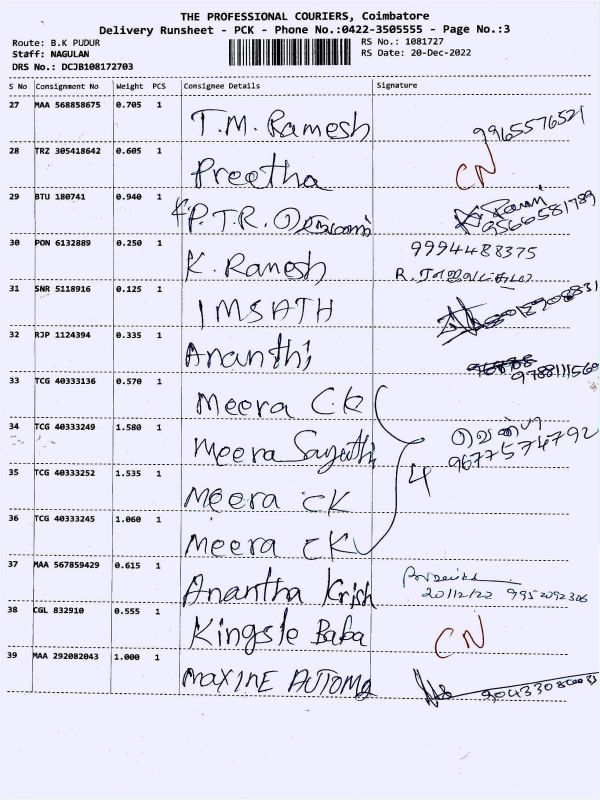 THE PROFESSIONAL COURIERS, Coimbatore
Delivery Runsheet - PCK - Phone No.:0422-3505555 - Page No.:3
Route: B.K PUDUR RS No.: 1081727
Staff: NAGULAN RS Date: 20-Dec-2022
DRS No.: DCJB108172703
S No Consignment No Weight PCS Consignee Details Signature
27 MAA 568858675 0.705 1 T.M. Ramesh 9965576521
28 TRZ 305418642 0.605 1 Preetha CN
29 BTU 180741 0.940 1 P.T.R. 9566581789
30 PON 6132889 0.250 1 K. Ramesh 9994488375
31 SNR 5118916 0.125 1 IMSATH
32 RJP 1124394 0.335 1 Ananthi 9788111560
33 TCG 40333136 0.570 1 Meera CK
34 TCG 40333249 1.580 1 Meera 9677574792
35 TCG 40333252 1.535 1 Meera CK 4
36 TCG 40333245 1.060 1 Meera CK
37 MAA 567859429 0.615 1 Anantha Krish
20/12/22 9952092306
38 CGL 832910 0.555 1 Kingsle Baba CN
39 MAA 292082043 1.000 1 MAXINE AUTOMO